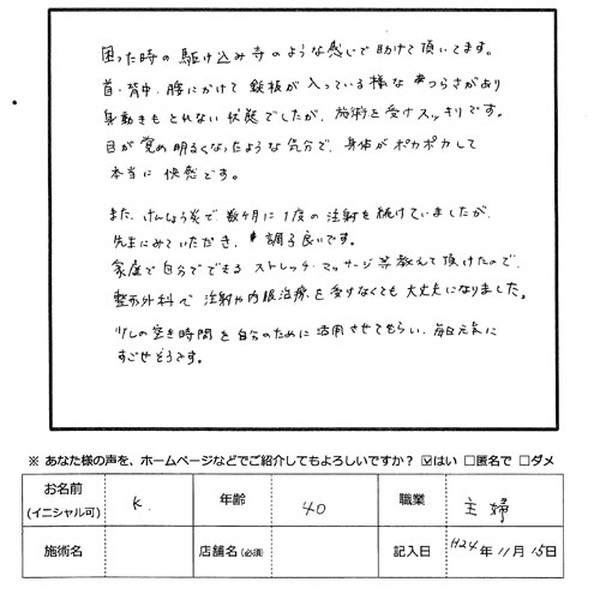 困った時の駆け込み寺のような感じで助けて頂いてます。
首・背中・腰にかけて鉄板が入っている様なつらさがあり
身動きもとれない状態でしたが、施術を受けスッキリです。
目が覚め明るくなったような気分で、身体がポカポカして
本当に快感です。
また、けんしょう炎で、数ヶ月に1度の注射を続けていましたが、
先生にみていただき、調子良いです。
家庭で自分でできるストレッチ・マッサージ等教えて頂けたので、
整形外科で注射や内服治療を受けなくても大丈夫になりました。
少しの空き時間を自分のために活用させてもらい、毎日元気に
すごせそうです。
※ あなた様の声を、ホームページなどでご紹介してもよろしいですか？ ☑はい □匿名で □ダメ
お名前
(イニシャル可) K. 年齢 40 職業 主婦
施術名 店舗名(必須) 記入日 H24年11月15日